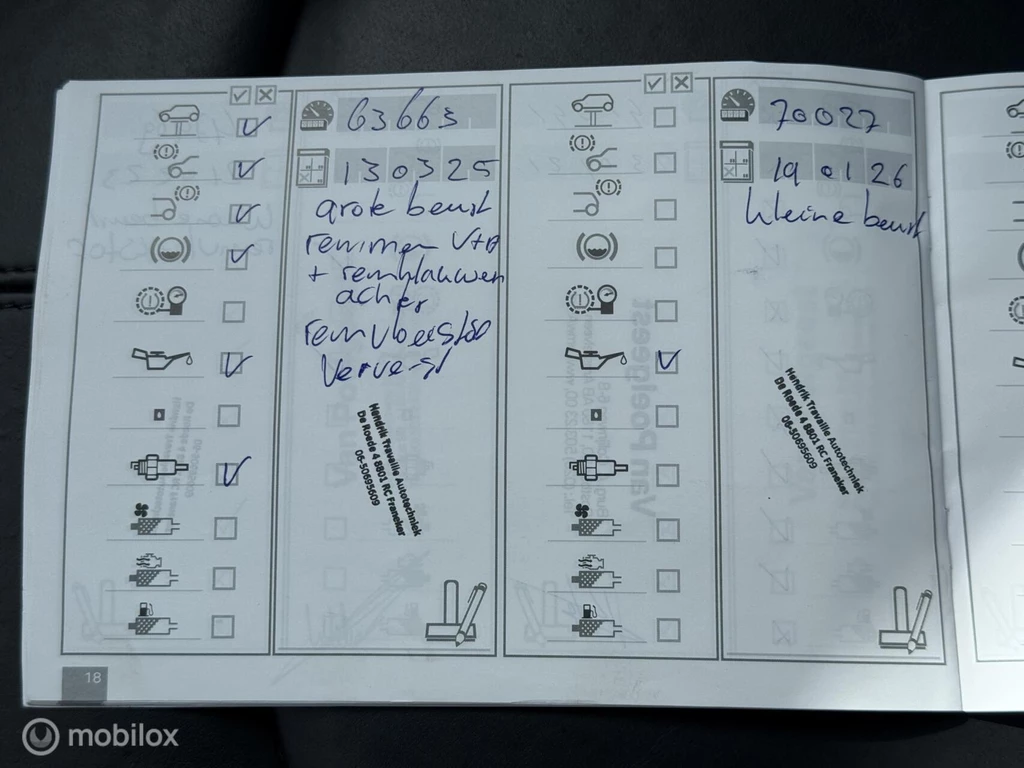 63663
130325
grote beurt
remmen V+A
+ remblauwen
achter
remvloeistof
ververst
Hendrik Travaille Autotechniek
De Roede 4 8801 RC Franeker
06-50695609
70027
190126
kleine beurt
Hendrik Travaille Autotechniek
De Roede 4 8801 RC Franeker
06-50695609
18
mobilox